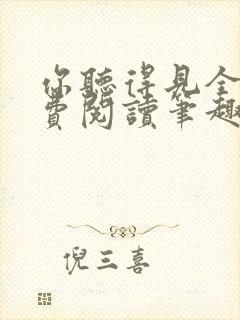 你聽得見全
費閱讀筆趣
倪三喜